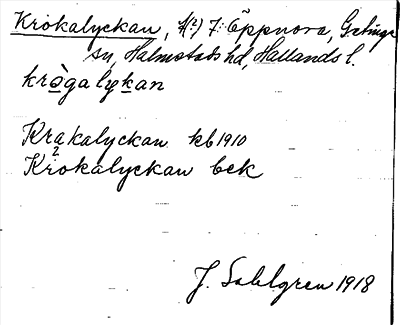 Krokalyckan, 7: Öppnora, Getinge
sn, Halmstads hd, Hallands l.
krògalykan
Krakalyckan kb 1910
Krokalyckan bek
J. Sahlgren 1918